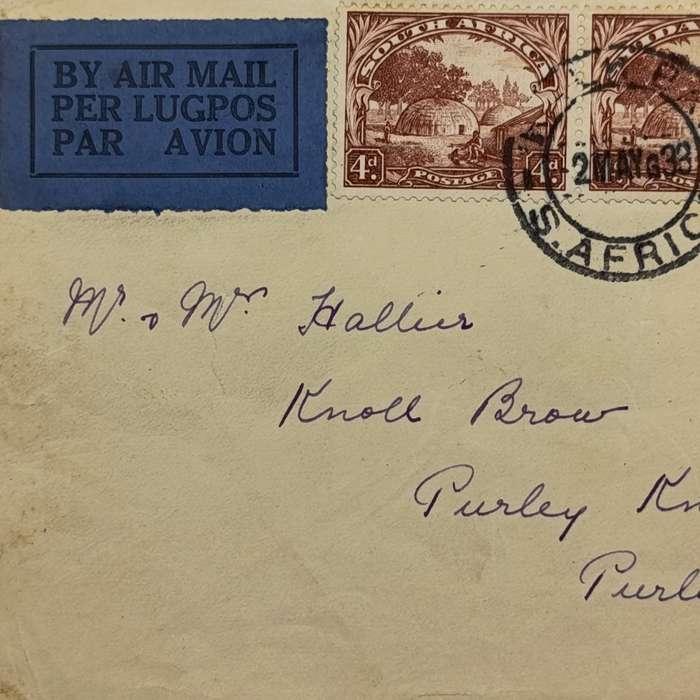 BY AIR MAIL
PER LUGPOS
PAR AVION
SOUTH AFRICA
4d 4d
POSTAGE
2 MAY 6 33
S. AFRIC
Mr. & Mrs. Hallier
Knoll Brow
Purley Kn
Purle